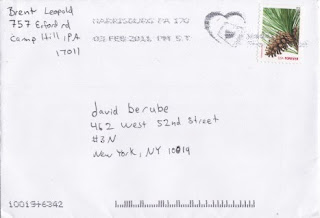 Brent Leopold
757 Erford rd
Camp Hill, PA
17011
HARRISBURG PA 170
03 FEB 2011 PM 5 T
david berube
462 West 52nd Street
#3N
New York, NY 10019
10019+6342